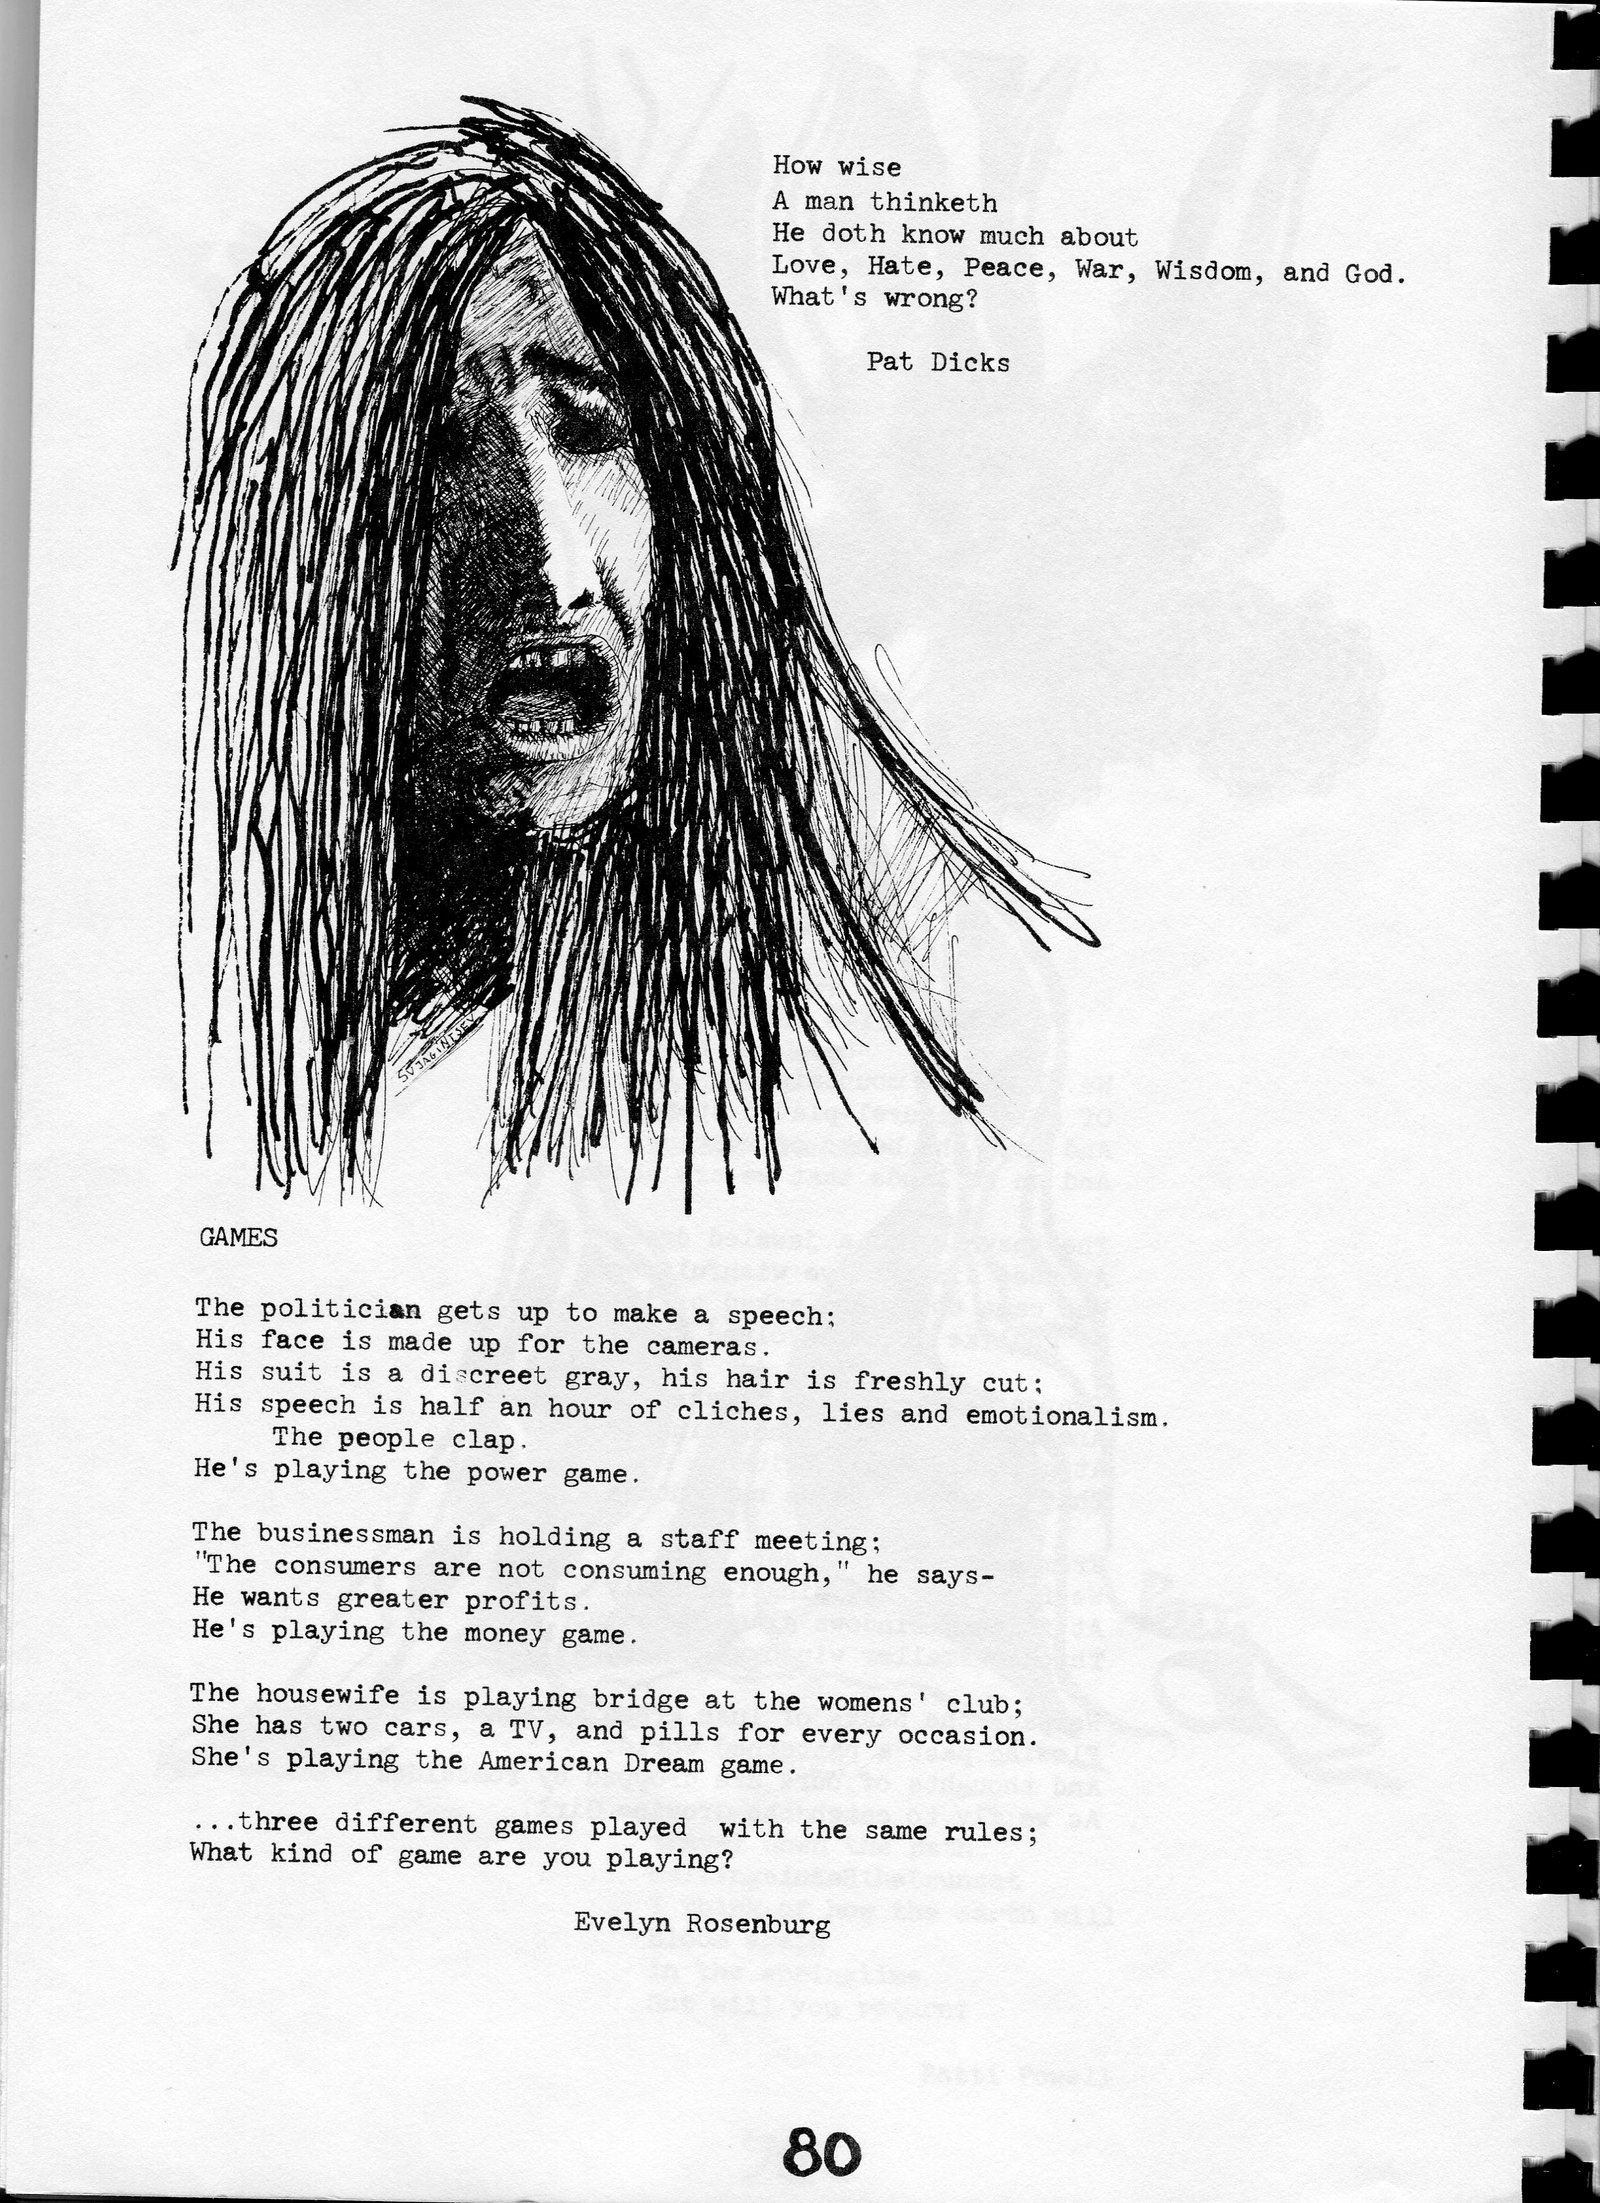 How wise
A man thinketh
He doth know much about
Love, Hate, Peace, War, Wisdom, and God.
What's wrong?
Pat Dicks
GAMES
The politician gets up to make a speech;
His face is made up for the cameras.
His suit is a discreet gray, his hair is freshly cut;
His speech is half an hour of cliches, lies and emotionalism.
The people clap.
He's playing the power game.
The businessman is holding a staff meeting;
"The consumers are not consuming enough," he says-
He wants greater profits.
He's playing the money game.
The housewife is playing bridge at the womens' club;
She has two cars, a TV, and pills for every occasion.
She's playing the American Dream game.
...three different games played with the same rules;
What kind of game are you playing?
Evelyn Rosenburg
80